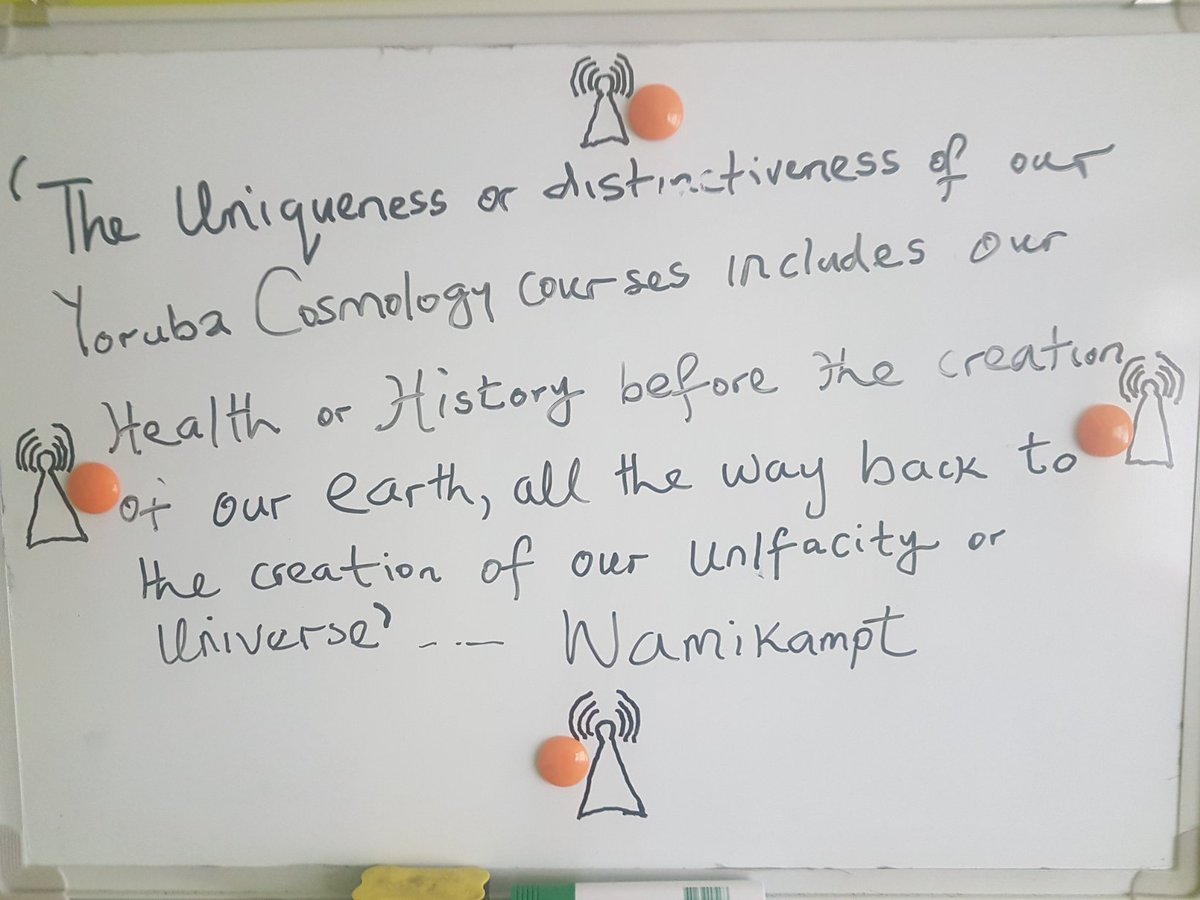 'The Uniqueness or distinctiveness of our
Yoruba Cosmology courses includes our
Health or History before the creation
of our earth, all the way back to
the creation of our unifacity or
Universe' ---- Wamikampt